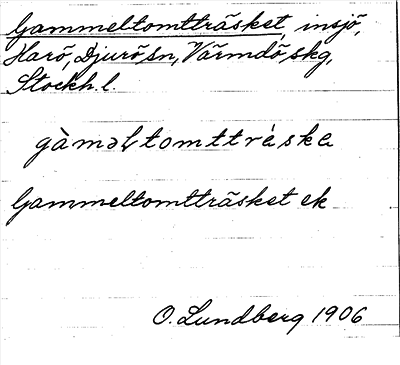 Gammeltomtträsket, insjö,
Harö, Djurö sn, Värmdö skg,
Stockh. l.
gàməltomttrȧ̀ska
Gammeltomtträsket ek
O. Lundberg 1906